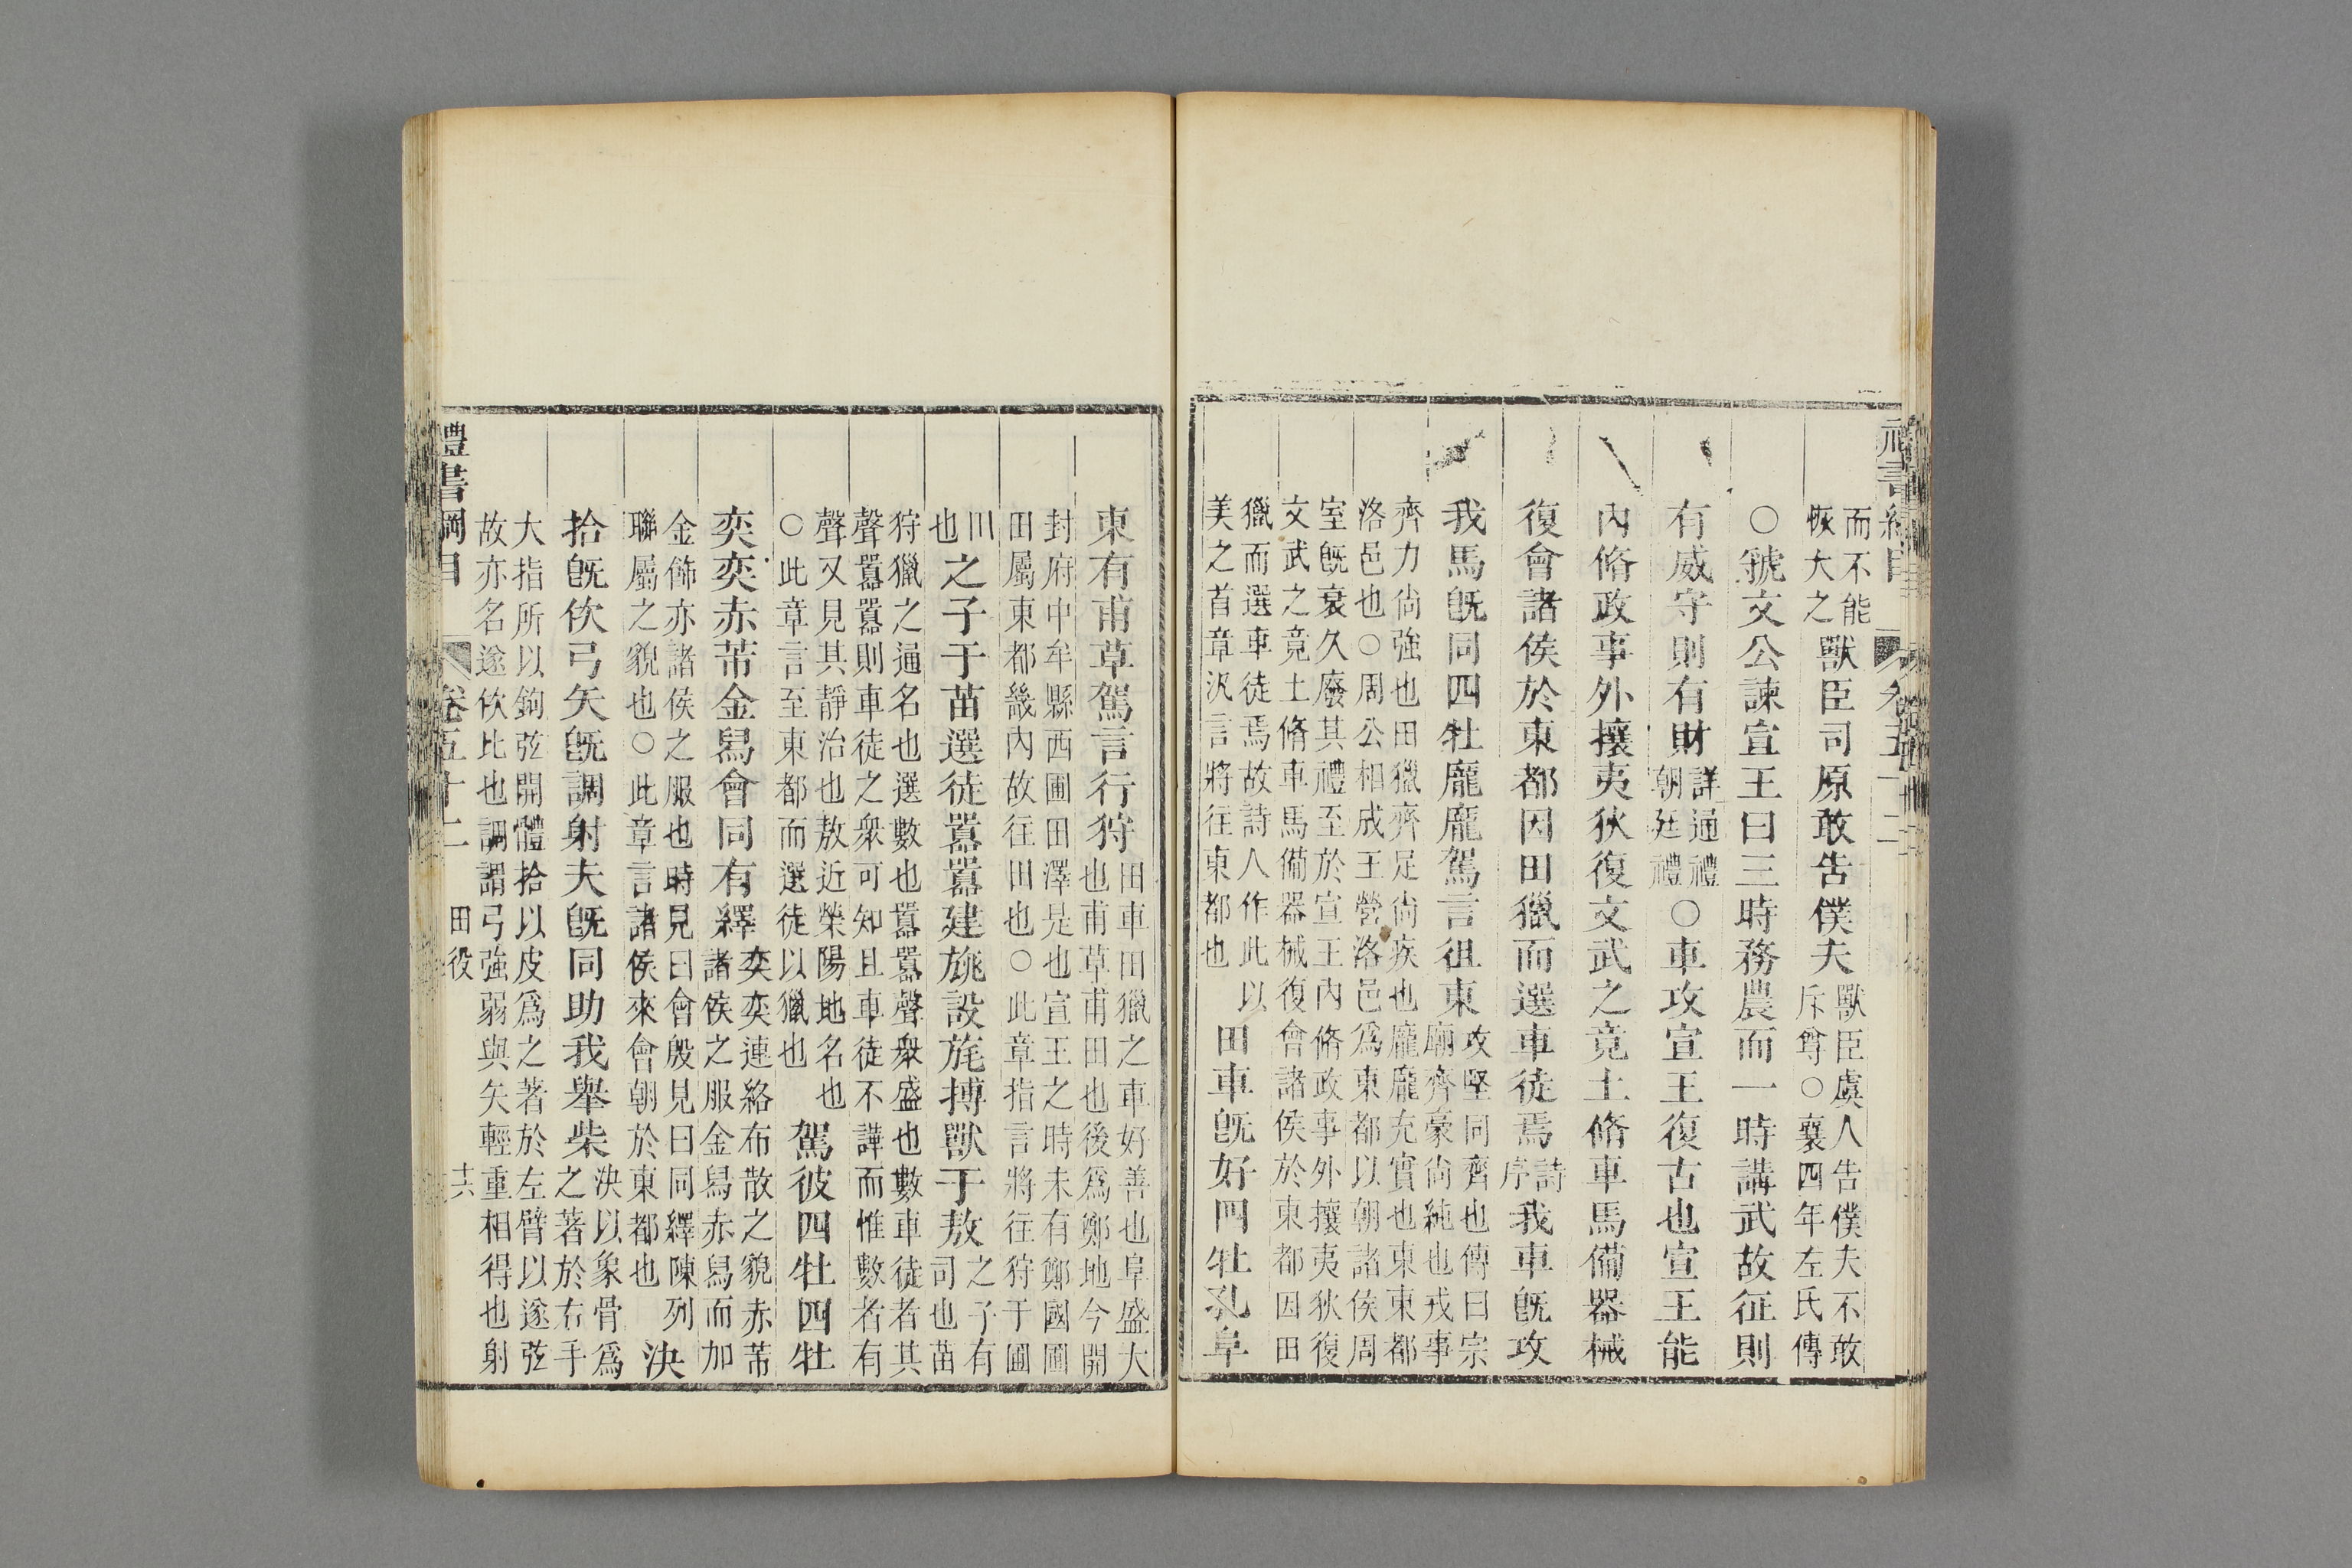 禮書綱目 卷五十二
而不能恢大之獸臣司原敢告僕夫獸臣虞人告僕夫不敢斥尊○襄四年左氏傳
○虢文公諫宣王曰三時務農而一時講武故征則
有威守則有財詳通禮朝廷禮○車攻宣王復古也宣王能
內脩政事外攘夷狄復文武之竟土脩車馬備器械
復會諸侯於東都因田獵而選車徒焉詩序我車旣攻
我馬旣同四牡龐龐駕言徂東攻堅同齊也傳曰宗廟齊豪尚純也戎事
齊力尚強也田獵齊足尚疾也龐龐充實也東東都
洛邑也○周公相成王營洛邑爲東都以朝諸侯周
室旣衰久廢其禮至於宣王內脩政事外攘夷狄復
文武之竟土脩車馬備器械復會諸侯於東都因田
獵而選車徒焉故詩人作此以
美之首章汎言將往東都也田車旣好四牡孔阜
東有甫草駕言行狩田車田獵之車好善也阜盛大也甫草甫田也後爲鄭地今開
封府中牟縣西圃田澤是也宣王之時未有鄭國圃
田屬東都畿內故往田也○此章指言將往狩于圃
田也之子于苗選徒囂囂建旐設旄搏獸于敖之子有司也苗
狩獵之通名也選數也囂囂聲衆盛也數車徒者其
聲囂囂則車徒之衆可知且車徒不譁而惟數者有
聲又見其靜治也敖近滎陽地名也
○此章言至東都而選徒以獵也駕彼四牡四牡
奕奕赤芾金舄會同有繹奕奕連絡布散之貌赤芾諸侯之服金舄赤舄而加
金飾亦諸侯之服也時見曰會殷見曰同繹陳列
聯屬之貌也○此章言諸侯來會朝於東都也決
拾旣佽弓矢旣調射夫旣同助我舉柴決以象骨爲之著於右手
大指所以鉤弦開體拾以皮爲之著於左臂以遂弦
故亦名遂佽比也調謂弓強弱與矢輕重相得也射
禮書綱目 卷五十二 田役 十六